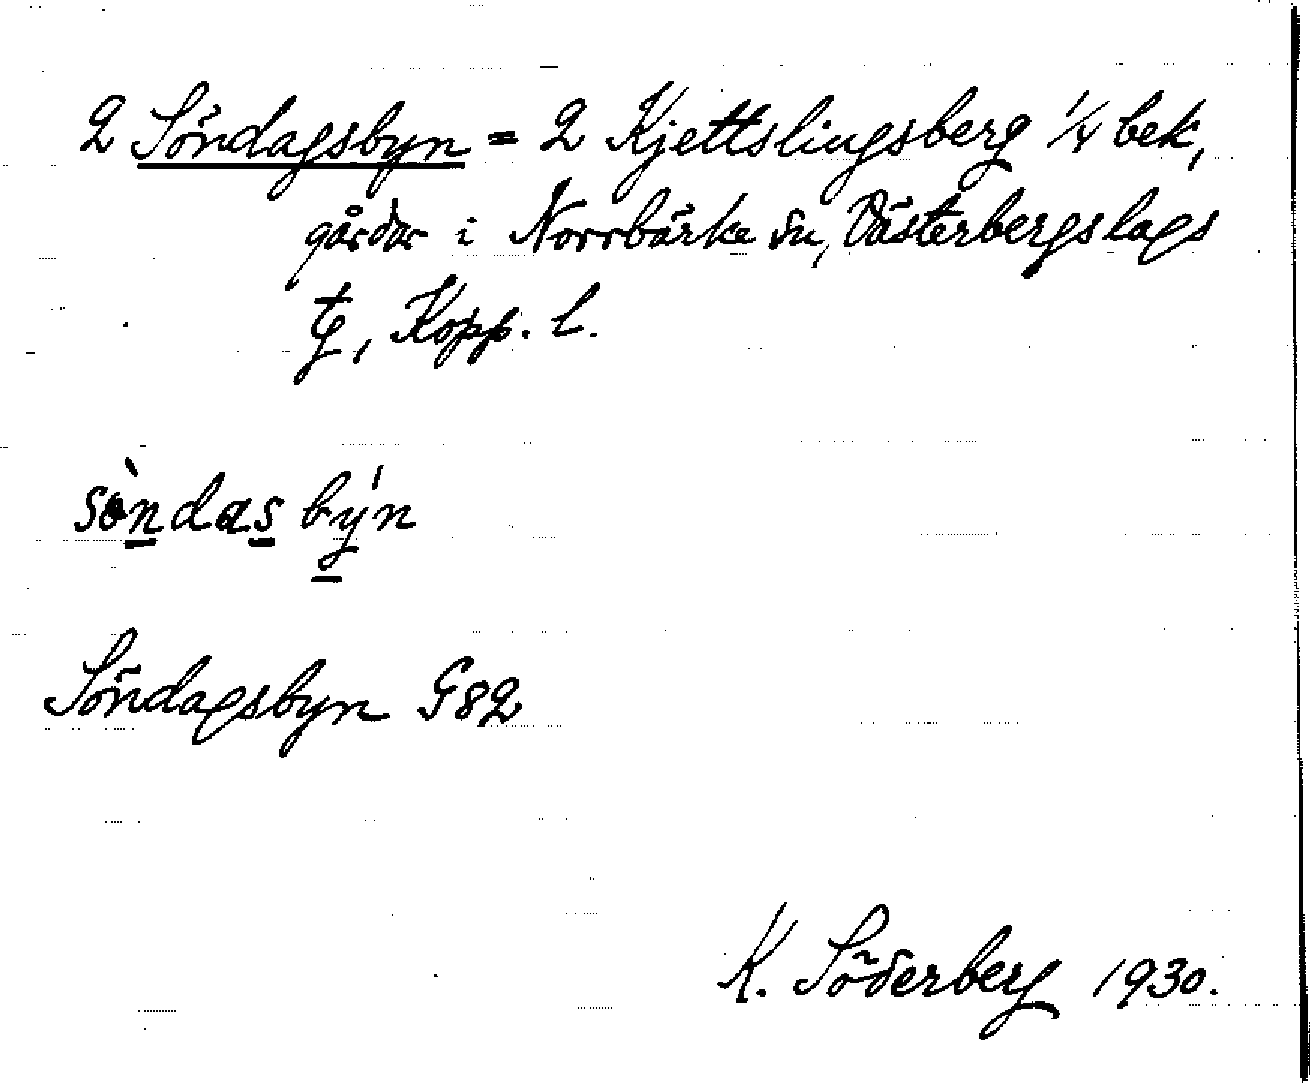 2 Söndagsbyn = 2 Kjettslingsberg 1/4 bek,
gårdar i Norrbärke sn, Västerbergslags
tg, Kopp. l.
sòndas býn
Söndagsbyn G82
K. Söderberg 1930.